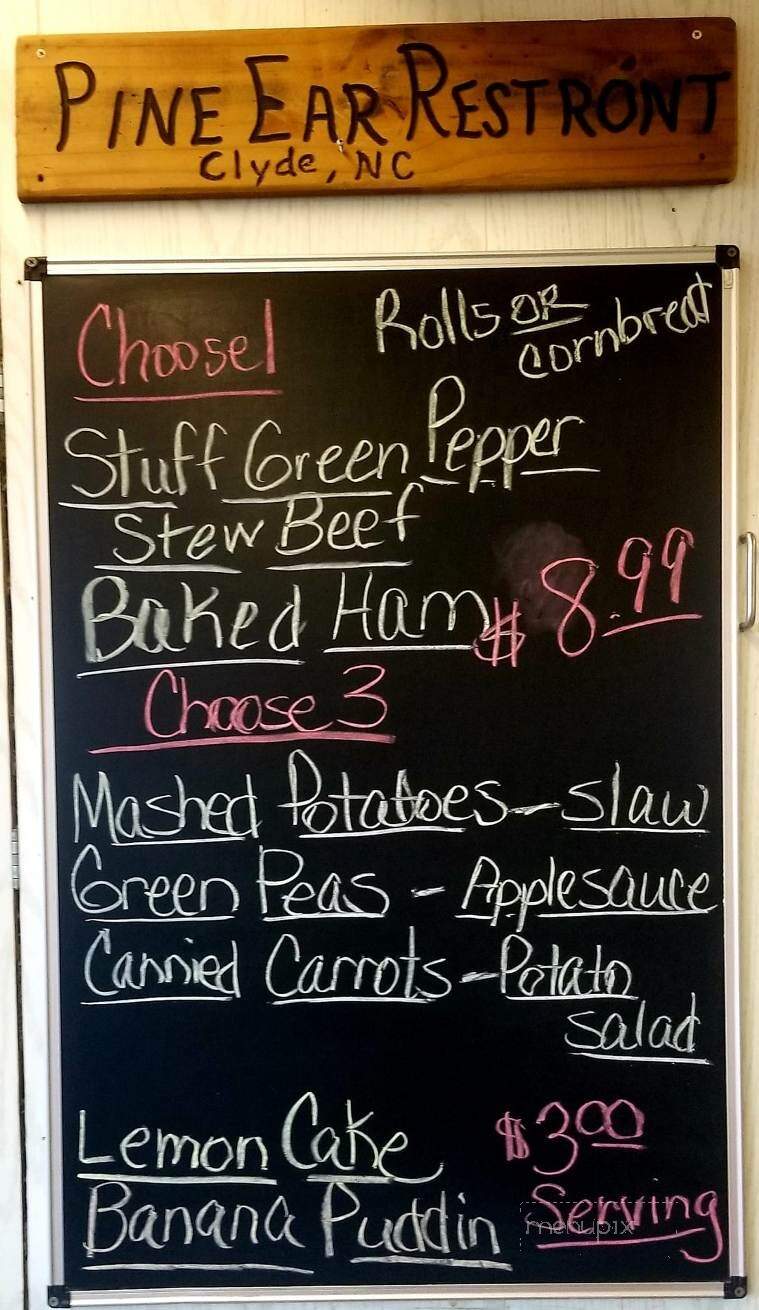 PINE EAR RESTRONT
Clyde, NC
Choose 1
Rolls OR
cornbread
Stuff Green Pepper
Stew Beef
Baked Ham
$8.99
Choose 3
Mashed Potatoes - slaw
Green Peas - Applesauce
Cannied Carrots - Potato
salad
Lemon Cake
$3.00
Banana Puddin
Serving
menupix